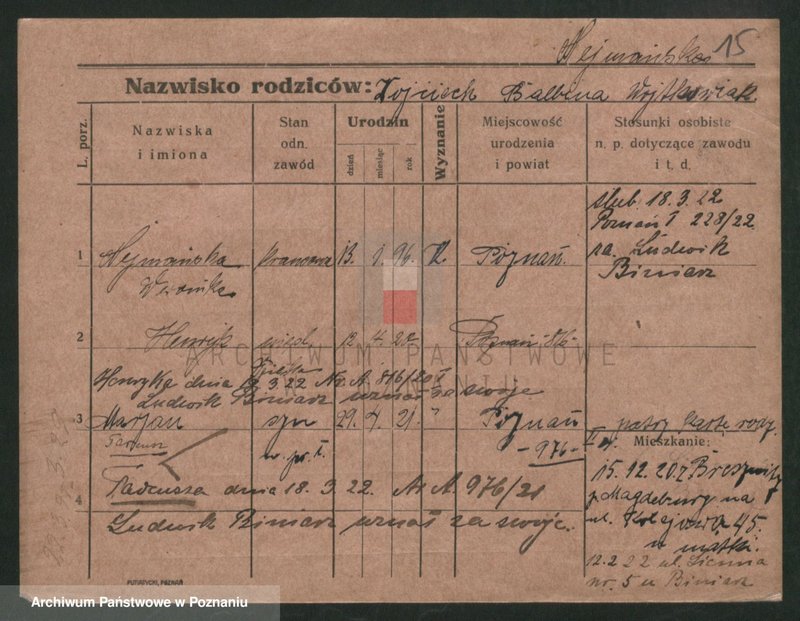 Nejmańska 15
Nazwisko rodziców: Wojciech Balbina Wojtkowiak.
L. porz.
Nazwiska
i imiona
Stan
odn.
zawód
Urodzin
dzień
miesiąc
rok
Wyznanie
Miejscowość
urodzenia
i powiat
Stosunki osobiste
n. p. dotyczące zawodu
i t. d.
ślub 18.3.22
Poznań I 228/22
za Ludwik
Biniarz
1 Nejmańska 13. 1. 96. Poznań.
Weronika
2 Henryk 12. 4. 20 Poznań 816
ARCHIWUM PAŃSTWOWE
W POZNANIU
Henryka dnia 18.3.22 Nr. A. 816/20
Ludwik Biniarz uznał za swoje
3 Marjan syn 29. 4. 21. " Poznań
Tadeusz
- 976 -
patrz kartę rodz.
Mieszkanie:
15.12.20 z
Magdeburg na
ul. Kolejowa 45.
u matki.
12.2.22 ul. Sienna
nr. 5 u Biniarz
4 Tadeusza dnia 18.3.22. Nr A. 976/21
Ludwik Biniarz uznał za swoje.
PUTIATYCKI, POZNAŃ
Archiwum Państwowe w Poznaniu